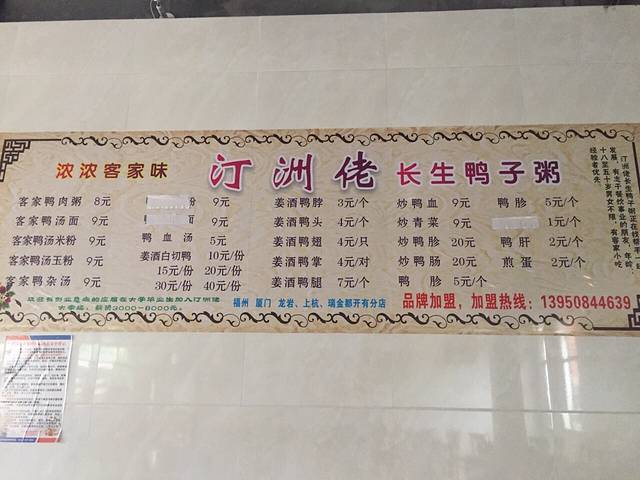 浓浓客家味 汀洲佬 长生鸭子粥
客家鸭肉粥 8元
客家鸭汤面 9元
客家鸭汤米粉 9元
客家鸭汤玉粉 9元
客家鸭杂汤 9元
粉 9元
面 9元
鸭血汤 5元
姜酒白切鸭 10元/份
15元/份 20元/份
30元/份 40元/份
姜酒鸭脖 3元/个
姜酒鸭头 4元/个
姜酒鸭翅 4元/只
姜酒鸭掌 4元/对
姜酒鸭腿 7元/个
炒鸭血 9元
炒青菜 9元
炒鸭胗 20元
炒鸭肠 20元
鸭胗 5元/个
鸭胗 5元/个
1元/个
鸭肝 2元/个
煎蛋 2元/个
汀洲佬长生鸭子粥正在找
发展，有志于餐饮事业的朋友，年龄
十八至五十岁男女不限，有客家小吃
经验者优先。
福州 厦门 龙岩、上杭、瑞金都开有分店
品牌加盟，加盟热线：13950844639